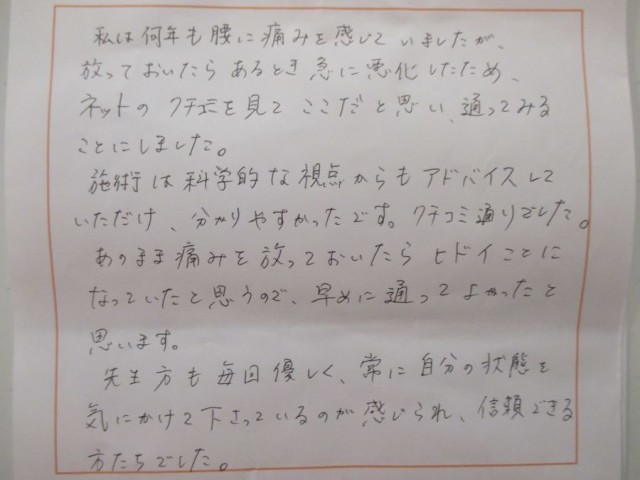 私は何年も腰に痛みを感じていましたが、
放っておいたらあるとき急に悪化したため、
ネットのクチコミを見てここだと思い、通ってみる
ことにしました。
施術は科学的な視点からもアドバイスして
いただけ、分かりやすかったです。クチコミ通りでした。
あのまま痛みを放っておいたらヒドイことに
なっていたと思うので、早めに通ってよかったと
思います。
先生方も毎回優しく、常に自分の状態を
気にかけて下さっているのが感じられ、信頼できる
方たちでした。